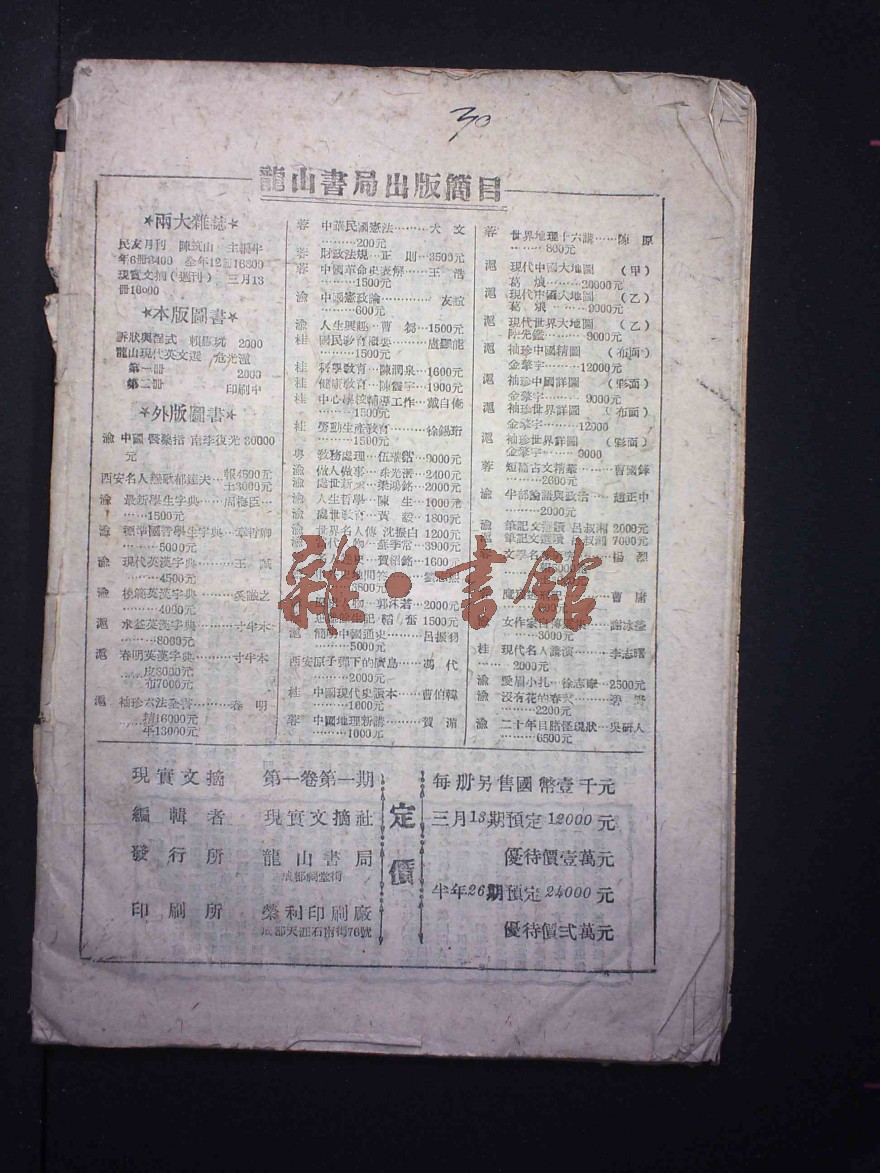 30
龍山書局出版簡目
★兩大雜誌★
民友月刊 陳筑山 主編半
年6冊8400 全年12冊16800
現實文摘(週刊) 三月13
冊10000
★本版圖書★
訴狀與程式 2000
龍山現代英文選
第一冊 2000
第二冊 印刷中
★外版圖書★
渝 中國醫藥指南李復光 30000
元
西安名人戀歌郁達夫…報4500元
土3000元
渝 最新學生字典……周梅臣…
……1500元
渝 標準國音學生字典…
………5000元
渝 現代英漢字典……王
………4500元
渝 英漢字典……
………4000元
滬 英漢字典……寸半本
………8000元
滬 春明英漢字典……寸半本
………皮8000元
布7000元
滬 袖珍六法全書……春明
……精16000元
年13000元
蓉 中華民國憲法……大文
………200元
蓉 財政法規…正 則…3500元
蓉 中國革命史表解……王 浩
………1500元
渝 中國憲政論…………友漁
………600元
渝 人生興趣…曹 芻…1500元
桂 國民教育概要……
………1500元
桂 科學教育…陳潤泉…1600元
桂 健康教育…陳 1900元
桂 中心學校輔導工作…戴自俺
………1500元
桂 勞動生產教育……徐錫珩
………1500元
粵 教務處理…伍瑞鍇…9000元
渝 做人做事…朱光潛…2400元
渝 處世新 …梁鴻銘…2000元
渝 人生哲學…陳 生…1000元
渝 處世教育…黃 毅…1800元
渝 世界名人傳 沈振白 1200元
當代人物…蘇季常…3900元
賀紹銘…1600
郭沫若…2000元
韜 奮 1500元
滬 簡明中國通史……呂振羽
………5000元
西安原子彈下的廣島……馮 代
………2000元
桂 中國現代史讀本…曹伯韓
………1000元
蓉 中國地理新講……賀 湄
………1000元
蓉 世界地理十六講……陳 原
………800元
滬 現代中國大地圖 (甲)
葛 熾………20000元
滬 現代中國大地圖 (乙)
葛 熾………9000元
滬 現代世界大地圖 (乙)
陸光鑑………9000元
滬 袖珍中國精圖 (布面)
金擎宇………12000元
滬 袖珍中國詳圖 (彩面)
金擎宇………9000元
滬 袖珍世界詳圖 (布面)
金擎宇………12000
滬 袖珍世界詳圖 (彩面)
金擎宇………9000
蓉 短篇古文精華……曹國鋒
………2600元
渝 半部論語與政治…趙正中
………2000元
渝 筆記文選讀 呂叔湘 2000元
滬 筆記文選讀 呂叔湘 7000元
楊 烈
曹 庸
渝 女作家自傳選集…謝冰瑩
………3000元
桂 現代名人講演……李志曙
……2000元
渝 愛眉小扎…徐志摩…2500元
渝 沒有花的春天……
………2200元
渝 二十年目睹怪現狀…吳研人
………6500元
雜·書館
現實文摘 第一卷第一期
編輯者 現實文摘社
發行所 龍山書局
成都祠堂街
印刷所 榮利印刷廠
成都天涯石南街76號
定價
每册另售國幣壹千元
三月13期預定12000元
優待價壹萬元
半年26期預定24000元
優待價弍萬元